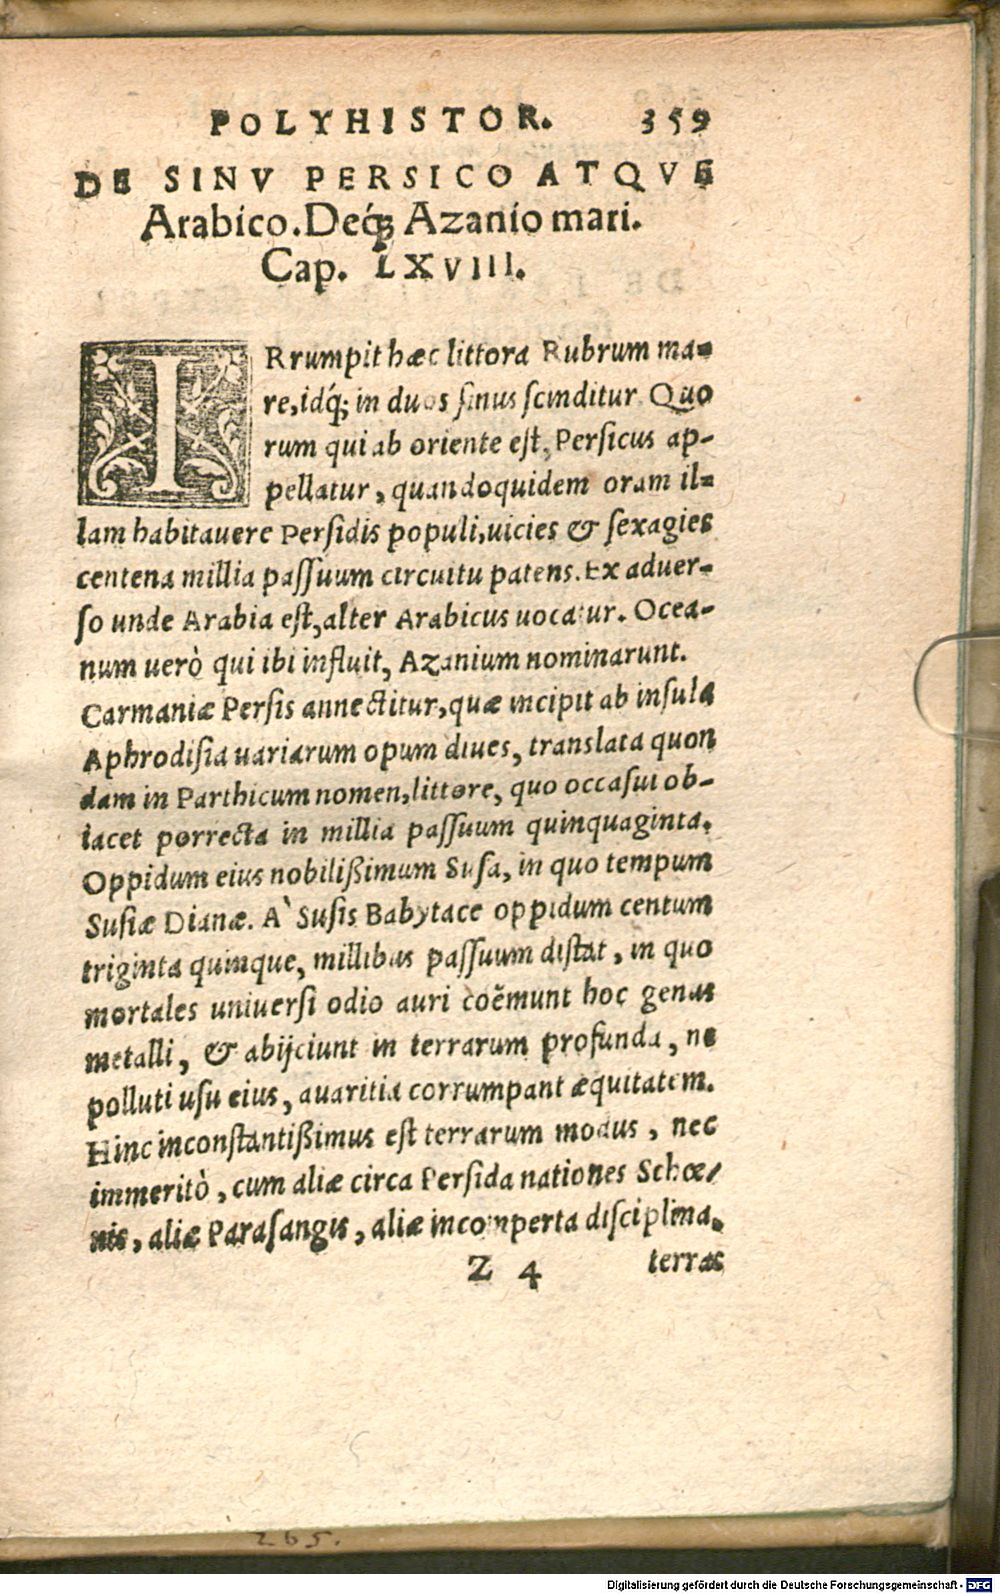 POLYHISTOR. 359
DE SINV PERSICO ATQVE
Arabico. Deq́; Azanio mari.
Cap. LXVIII.
IRrumpit hæc littora Rubrum ma-
re, idq́; in duos sinus scinditur Quo
rum qui ab oriente est, Persicus ap-
pellatur, quandoquidem oram il-
lam habitavere Persidis populi, uicies & sexagies
centena millia passuum circuitu patens. Ex aduer-
so unde Arabia est, alter Arabicus uocatur. Ocea-
num uerò qui ibi influit, Azanium nominarunt.
Carmaniæ Persis annectitur, quæ incipit ab insula
Aphrodisia uariarum opum diues, translata quon
dam in Parthicum nomen, littore, quo occasui ob-
iacet porrecta in millia passuum quinquaginta.
Oppidum eius nobilißimum Susa, in quo tempum
Susiæ Dianæ. A` Susis Babytace oppidum centum
triginta quinque, millibus passuum distat, in quo
mortales universi odio auri coẽmunt hoc genus
metalli, & abijciunt in terrarum profunda, ne
polluti usu eius, avaritia corrumpant æquitatem.
Hinc inconstantißimus est terrarum modus, nec
immeritò, cum aliæ circa Persida nationes Schœ-
nis, aliæ Parasangis, aliæ incomperta disciplina.
Z 4 terras
265.
Digitalisierung gefördert durch die Deutsche Forschungsgemeinschaft - DFG